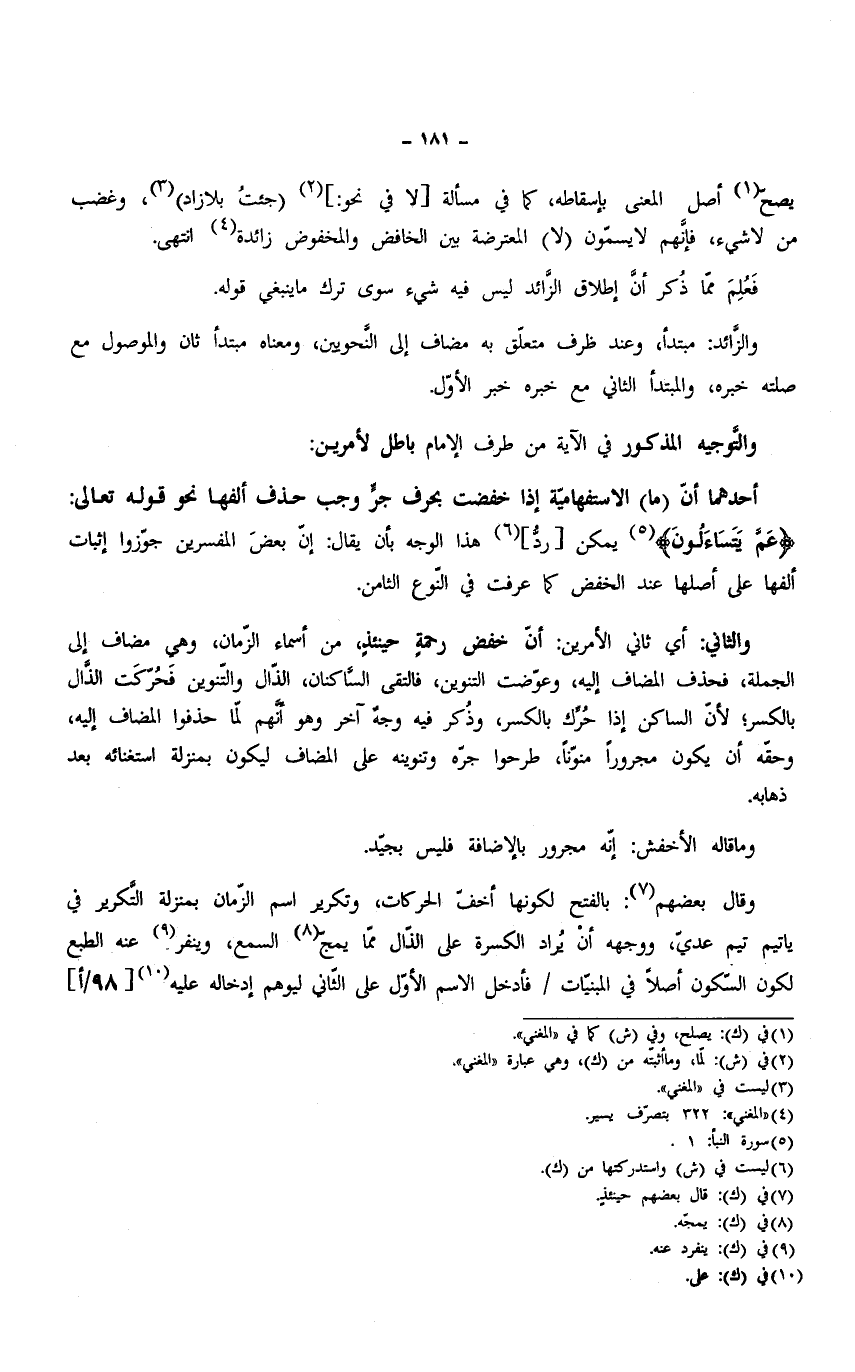 - ١٨١ -
يصحّ(١) أصل المعنى بإسقاطه، كما في مسألة [لا في نحو:](٢) (جئتُ بلازاد)(٣)، وغضب
من لاشيء، فإنَّهم لايسمّون (لا) المعترضة بين الخافض والمخفوض زائدة(٤) انتهى.
فَعُلِمَ ممّا ذُكر أنَّ إطلاق الزَّائد ليس فيه شيء سوى ترك ماينبغي قوله.
والزَّائد: مبتدأ، وعند ظرف متعلّق به مضاف إلى النَّحويين، ومعناه مبتدأ ثان والموصول مع
صلته خبره، والمبتدأ الثاني مع خبره خبر الأوّل.
والتَّوجيه المذكور في الآية من طرف الإمام باطل لأمرين:
أحدهما أنّ (ما) الاستفهاميّة إذا خفضت بحرف جرٍّ وجب حذف ألفها نحو قوله تعالى:
﴿عَمَّ يَتَسَاءَلُونَ﴾(٥) يمكن [ردُّ](٦) هذا الوجه بأن يقال: إنّ بعضَ المفسرين جوّزوا إثبات
ألفها على أصلها عند الخفض كما عرفت في النّوع الثامن.
والثاني: أي ثاني الأمرين: أنّ خفض رحمةٍ حينئذٍ، من أسماء الزّمان، وهي مضاف إلى
الجملة، فحذف المضاف إليه، وعوّضت التنوين، فالتقى السَّاكنان، الذّال والتّنوين فَحُرّكَت الذّال
بالكسر؛ لأنّ الساكن إذا حُرِّك بالكسر، وذُكر فيه وجهٌ آخر وهو أنَّهم لمّا حذفوا المضاف إليه،
وحقّه أن يكون مجروراً منوّناً، طرحوا جرّه وتنوينه على المضاف ليكون بمنزلة استغنائه بعد
ذهابه.
وماقاله الأخفش: إنّه مجرور بالإضافة فليس بجيّد.
وقال بعضهم(٧): بالفتح لكونها أخفّ الحركات، وتكرير اسم الزّمان بمنزلة التَّكرير في
ياتيم تيم عديّ، ووجهه أنْ يُراد الكسرة على الذّال ممّا يمجّ(٨) السمع، وينفر(٩) عنه الطبع
لكون السّكون أصلاً في المبنيّات / فأدخل الاسم الأوّل على الثّاني ليوهم إدخاله عليه(١٠) [٩٨/أ]
(١) في (ك): يصلح، وفي (ش) كما في «المغني».
(٢) في (ش): لمّا، وماأثبتّه من (ك)، وهي عبارة «المغني».
(٣) ليست في «المغني».
(٤) «المغني»: ٣٢٢ بتصرّف يسير.
(٥) سورة النبأ: ١ .
(٦) ليست في (ش) واستدركتها من (ك).
(٧) في (ك): قال بعضهم حينئذٍ.
(٨) في (ك): يمجّه.
(٩) في (ك): ينفرد عنه.
(١٠) في (ك): على.